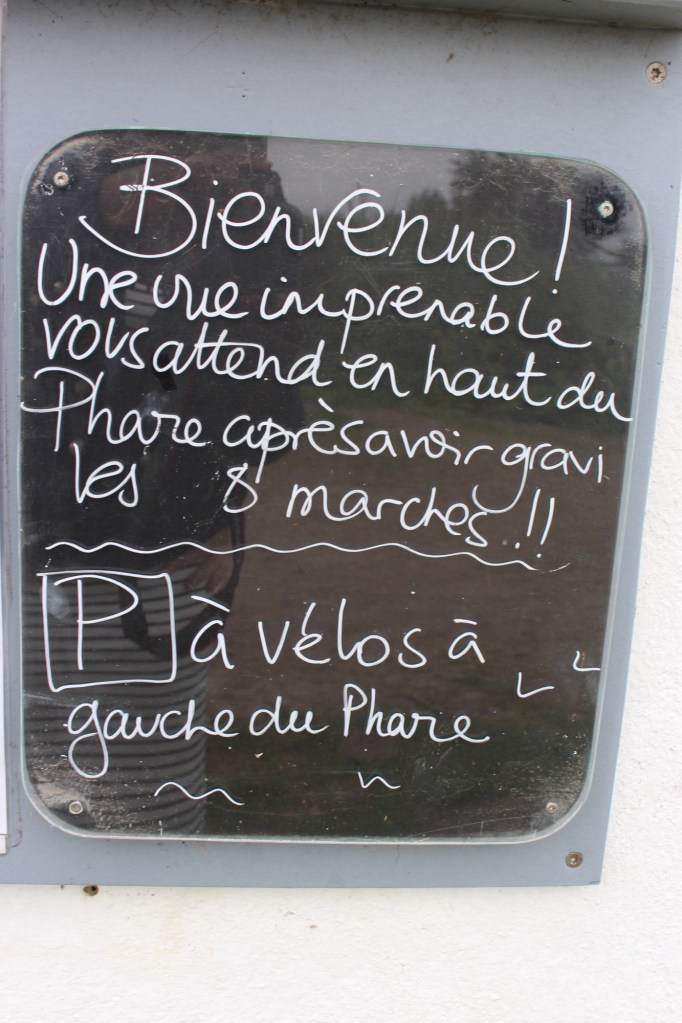 Bienvenue !
Une vue imprenable
vous attend en haut du
Phare après avoir gravi
les 8 marches !!
P à vélos à
gauche du Phare